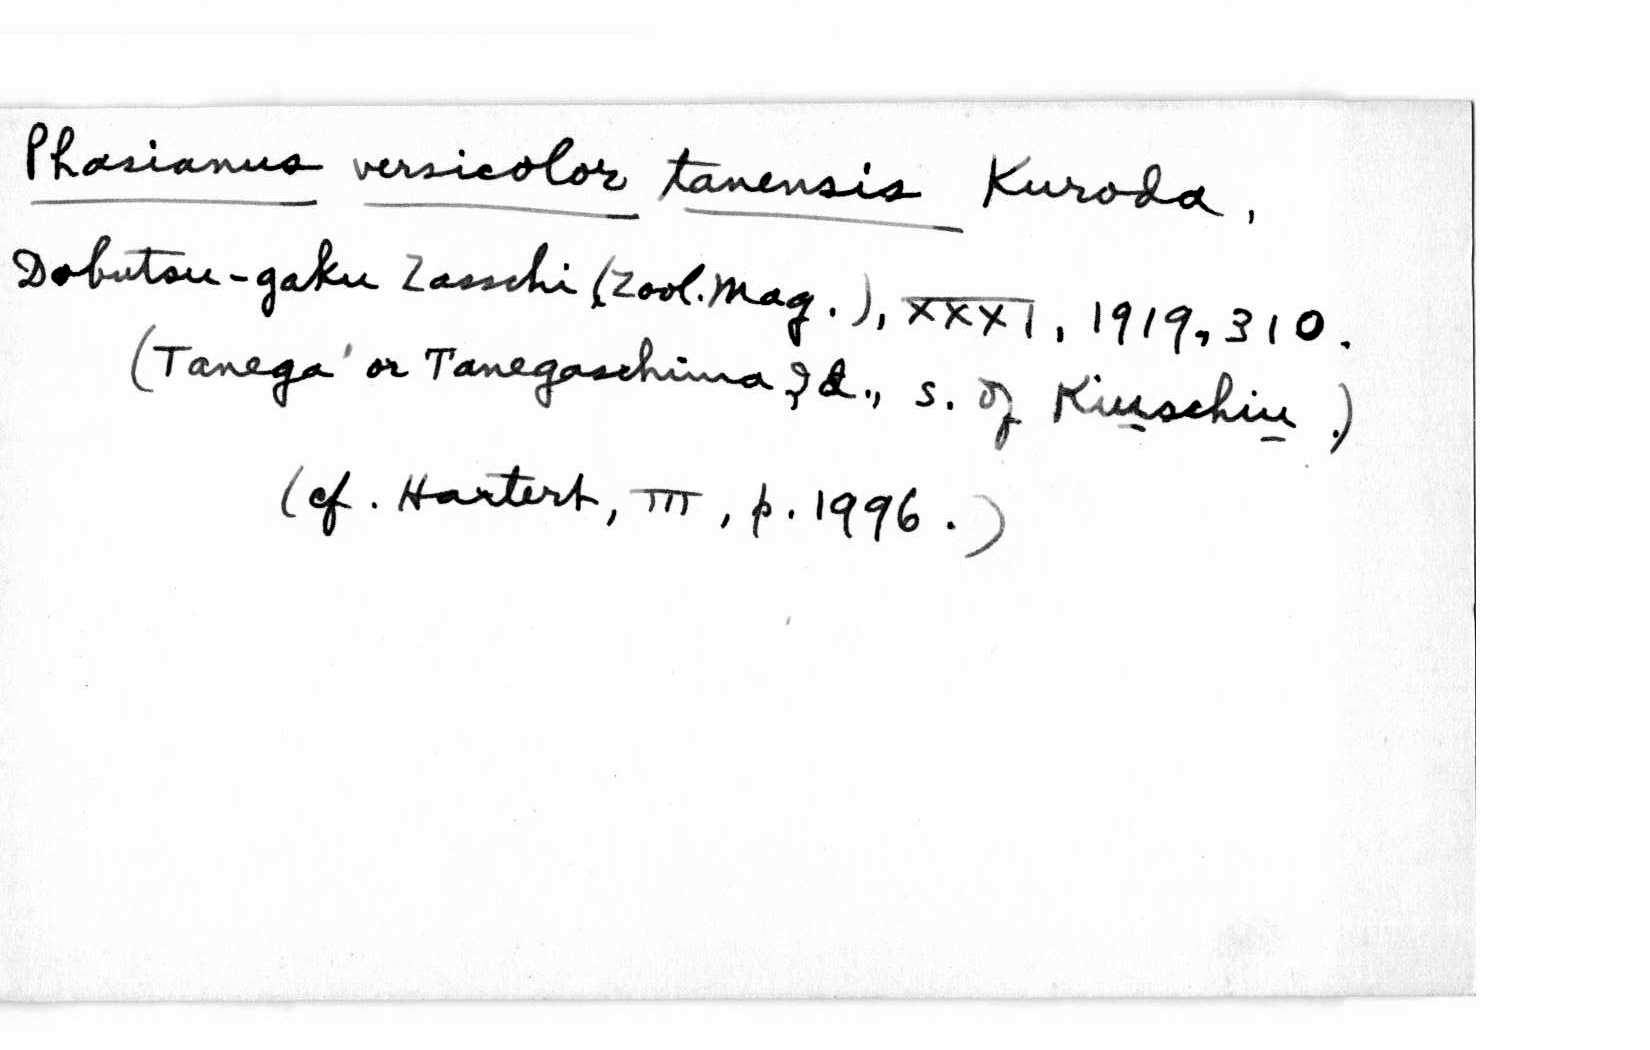 Phasianus versicolor tanensis Kuroda,
Dobutsu-gaku Zasschi (Zool. Mag.), XXXI, 1919, 310.
(Tanega' or Tanegaschima Id., s. of Kiuschiu.)
(cf. Hartert, III, p. 1996.)